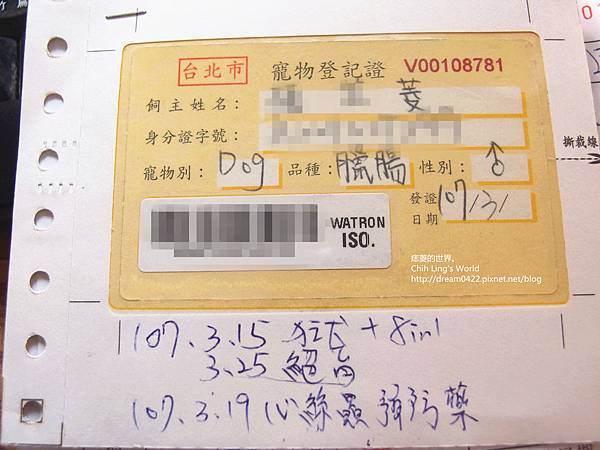 台北市 寵物登記證 V00108781
飼主姓名： 菱
身分證字號：
寵物別： Dog 品種： 臘腸 性別： ♂
發證日期 107/31
WATRON
ISO.
撕裁線
痞菱的世界。
Chih Ling's World
http://dream0422.pixnet.net/blog
107.3.15 狂犬 + 8in1
3.25 絕育
107.3.19 心絲蟲 預防藥